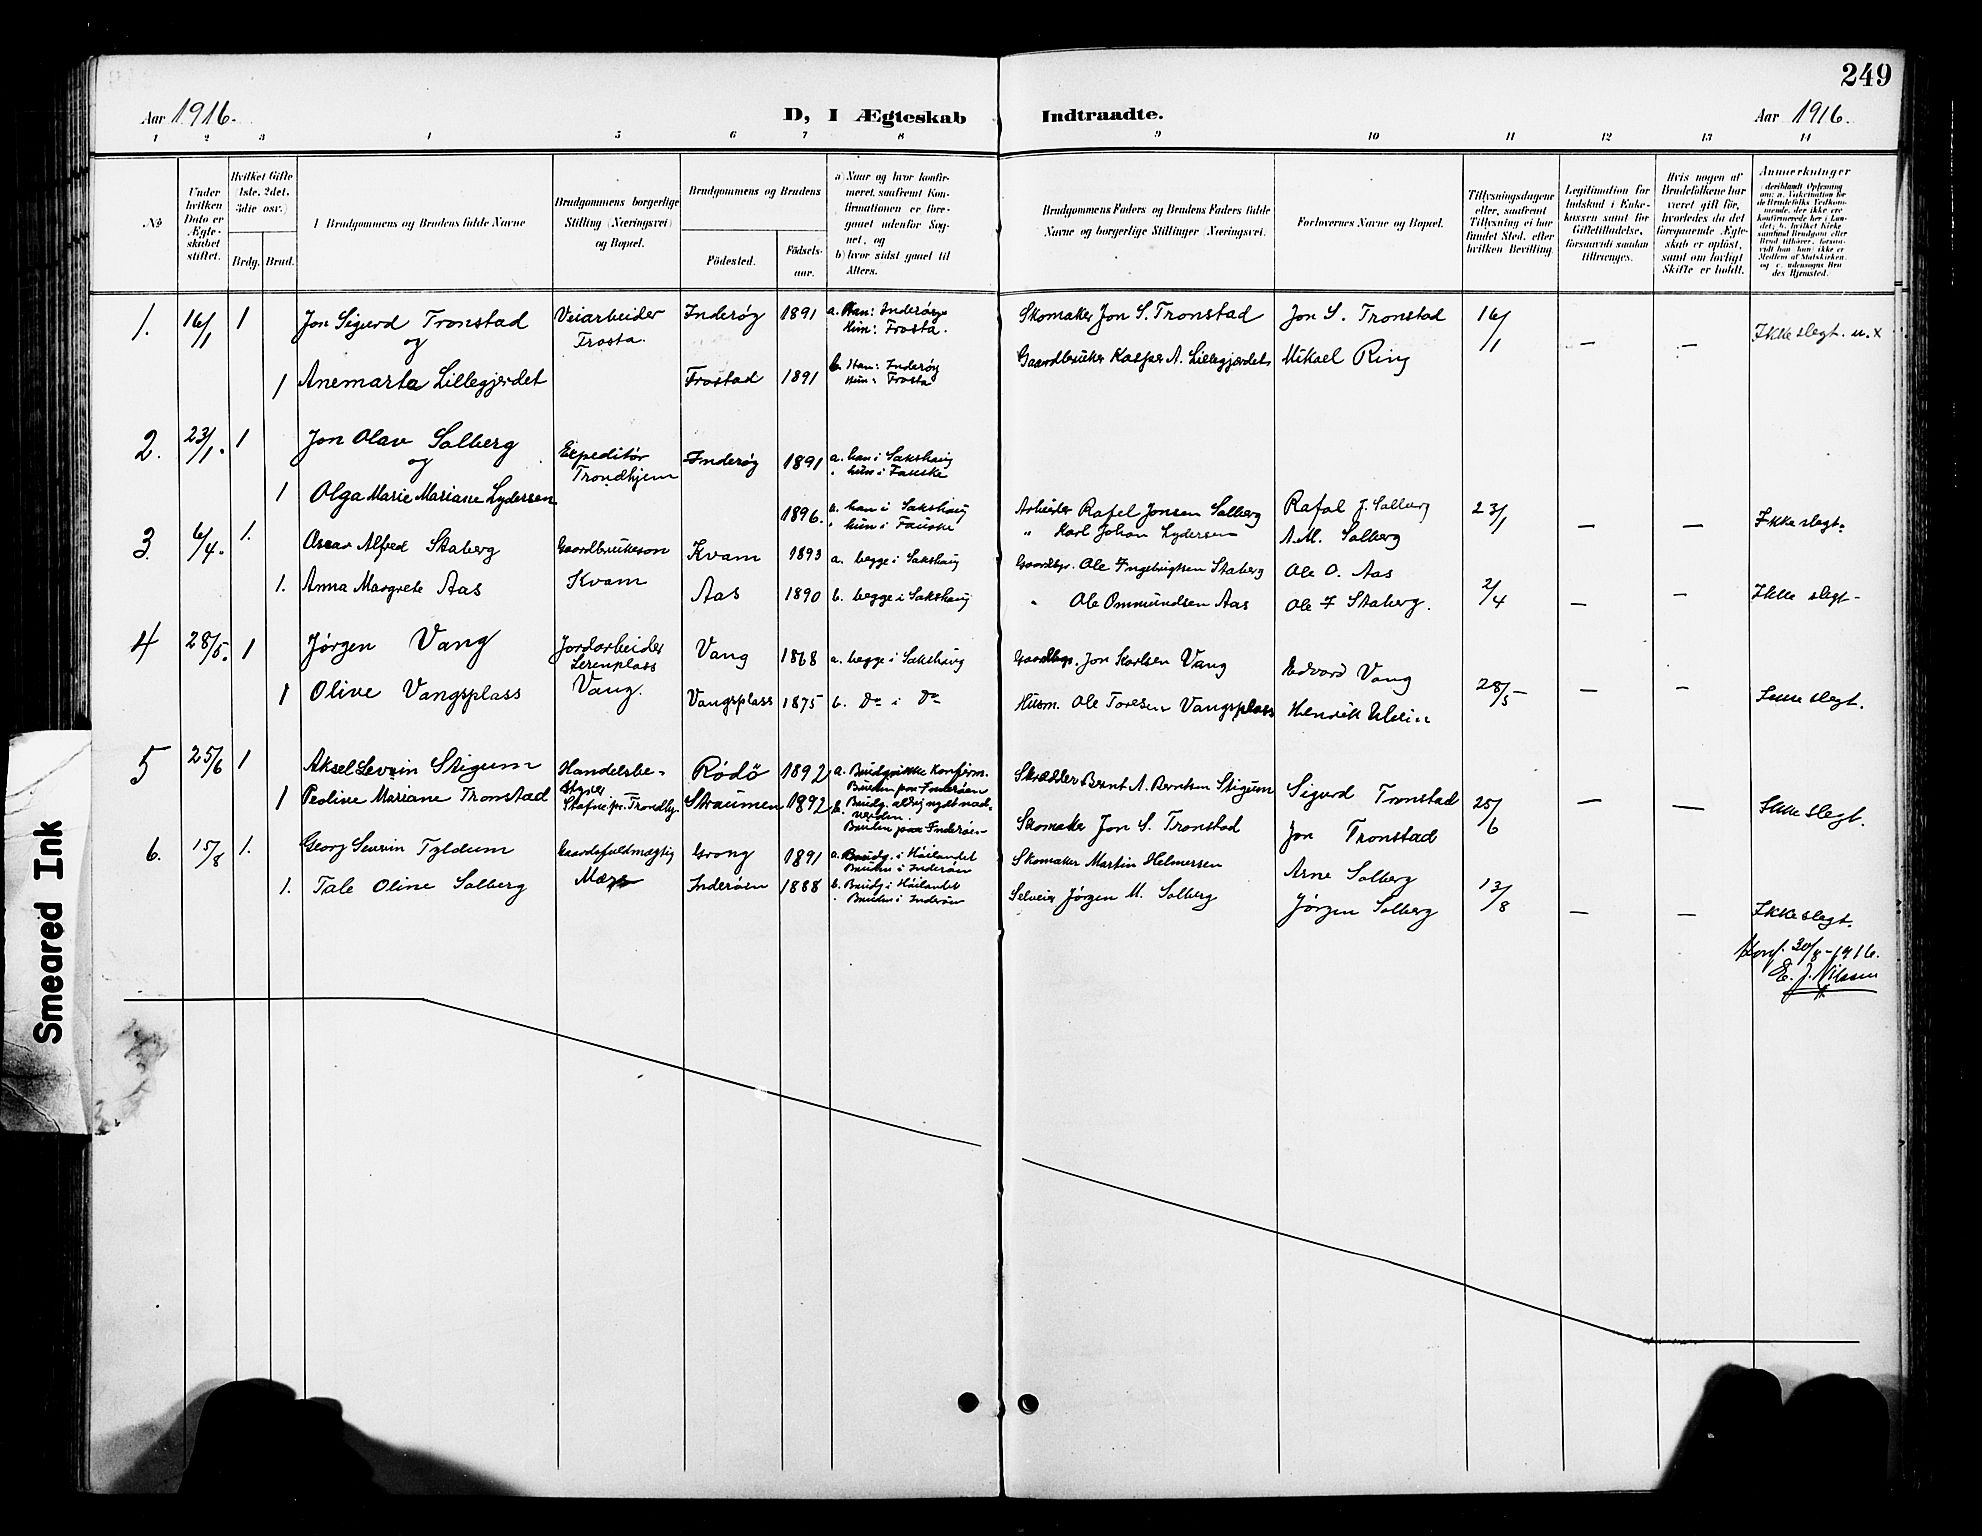 249
Aar 1916.
D, I Ægteskab Indtraadte.
Aar 1916.
1 2 3 4 5 6 7 8 9 10 11 12 13 14
No
Under hvilken Dato er Ægteskabet stiftet.
Hvilket Gifte (1ste, 2det, 3die osv.)
Brdg. Brud.
I Brudgommens og Brudens fulde Navne
Brudgommens borgerlige Stilling (Næringsvei) og Bopæl.
Brudgommens og Brudens
Fødested.
Fødselsaar.
a) Naar og hvor konfirmeret, saafremt Konfirmationen er foregaaet udenfor Sognet, og
b) hvor sidst gaaet til Alters.
Brudgommens Faders og Brudens Faders fulde Navne og borgerlige Stillinger (Næringsvei).
Forlovernes Navne og Bopæl.
Tillysningsdagene eller, saafremt Tillysning ei har fundet Sted, efter hvilken Bevilling
Legitimation for Indskud i Enkekassen samt for Giftetilladelse, forsaavidt saadan tiltrænges.
Hvis nogen af Brudefolkene har været gift før, hvorledes da det foregaaende Ægteskab er opløst, samt om lovligt Skifte er holdt.
Anmærkninger
1. 16/1 1 Jon Sigurd Tronstad Veiarbeider Inderøy 1891 a. Han: Inderøy Skomaker Jon S. Tronstad Jon S. Tronstad 16/1 — — Ikke slegt. u. x
og Frosta. Hun: Frosta.
1 Anemarta Lillegjerdet Frostad 1891 b. Han: Inderøy Gaardbruker Kasper A. Lillegjerdet Mikael Ring
Hun: Frosta
2. 23/1. 1 Jon Olav Salberg Expeditør Inderøy 1891 a. han i Sakshaug
og Trondhjem hun i Fauske
1 Olga Marie Mariane Lydersen 1896. han i Sakshaug Arbeider Rafel Jonsen Salberg Rafal J. Salberg 23/1 — — Ikke slegt.
hun i Fauske " Karl Johan Lydersen A.M. Salberg
3. 6/4. 1. Oscar Alfred Staberg Gaardbrukeson Kvam 1893 a. begge i Sakshaug Gaardbr. Ole Ingebrigtsen Staberg Ole O. Aas
1. Anna Margrete Aas Kvam Aas 1890 b. begge i Sakshaug " Ole Ommundsen Aas Ole I Staberg. 2/4 — — Ikke slegt -
4 28/5. 1 Jørgen Vang Jordarbeider Vang 1868 a. begge i Sakshaug Gaardbr. Jon Karlsen Vang Edvard Vang
1 Olive Vangsplass Vang. Vangsplass 1875 b. Do i Do Husm. Ole Toresen Vangsplass 28/5 — — Ikke slegt.
5 25/6 1 Aksel Stigum Handelsbestyrer Rödö 1892 a. Brudg. ikke konfirm. Skrædder Bernt A. Berntsen Stigum Sigurd Tronstad
Bruden paa Inderøen
1 Peoline Mariane Tronstad Stafne pr. Trondhj. Straumen 1892 b. Brudg. aldrig nydt nadverden. Skomaker Jon S. Tronstad Jon Tronstad 25/6 — — Ikke slegt.
Bruden paa Inderøen
6. 15/8 1. Georg Severin Tyldum Gaardsfuldmægtig Grong 1891 a. Brudg. i Høilandet Skomaker Martin Helmersen Arne Salberg
Bruden i Inderøen
1. Tale Oline Salberg Mære Inderøen 1888 b. Brudg. i Høilandet Selveier Jørgen M. Salberg Jørgen Salberg 13/8 — — Ikke slegt.
Bruden i Inderøen
Konf. 30/8-1916.
E. J. Nilssen
Smeared Ink